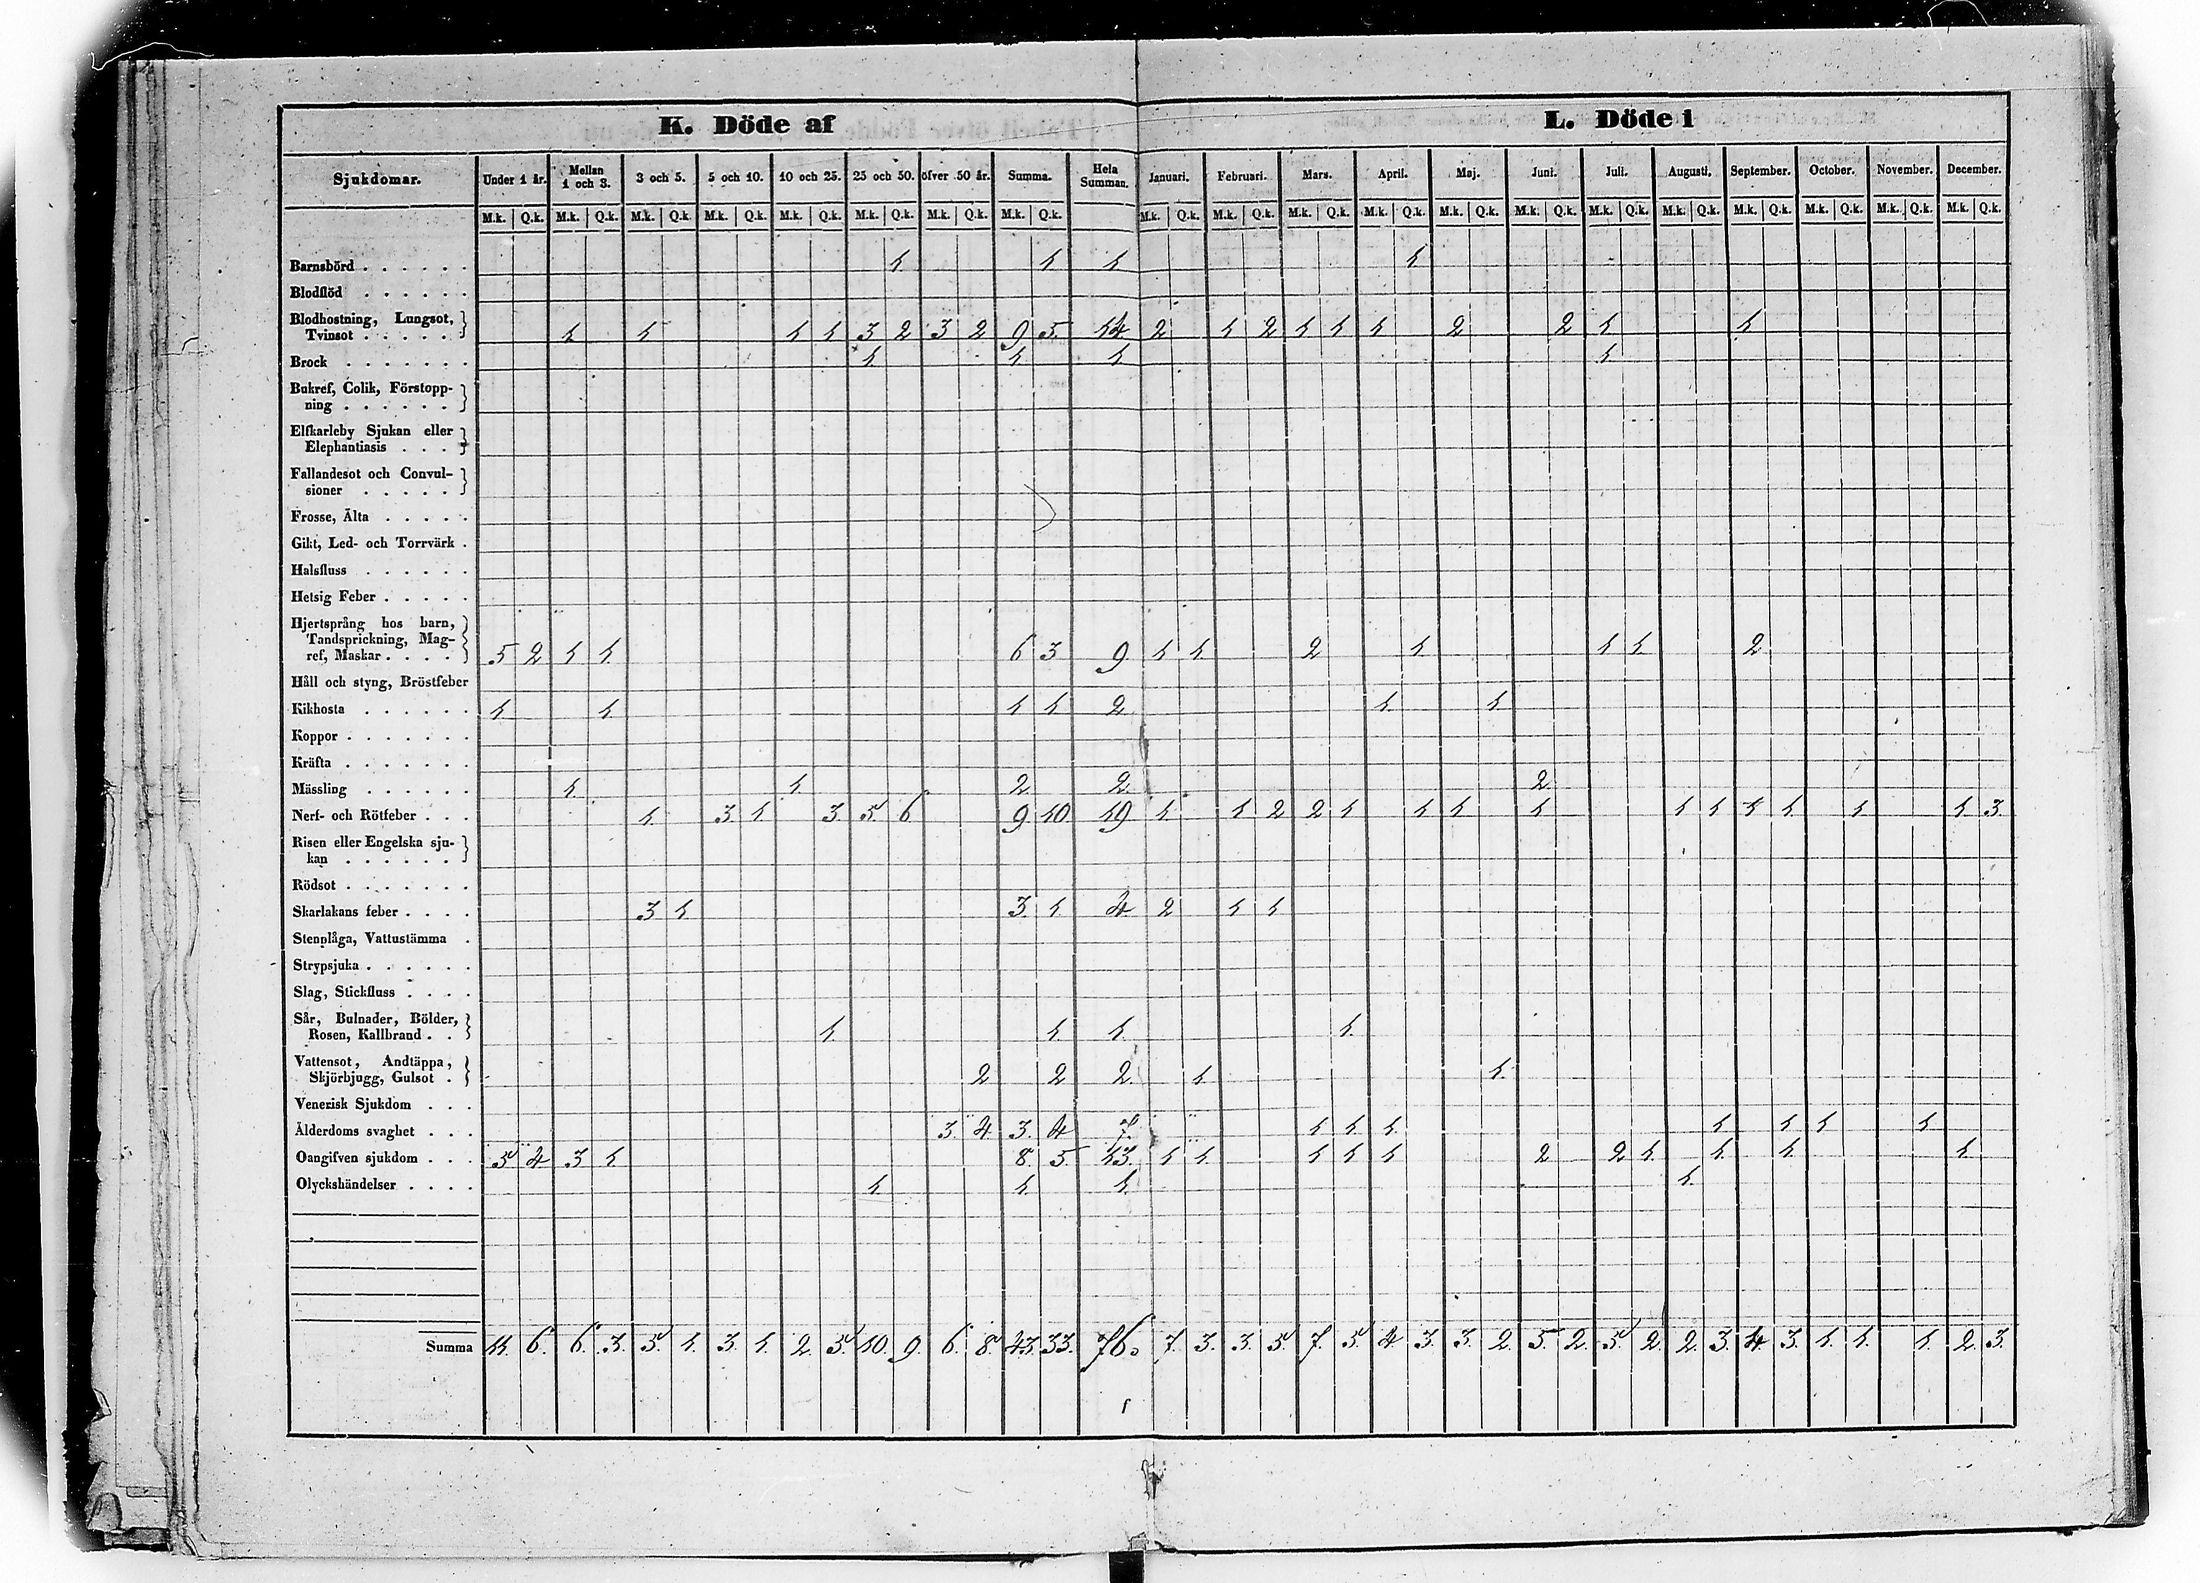 K. Döde af L. Döde i
Sjukdomar. Under 1 år. Mellan 1 och 3. 3 och 5. 5 och 10. 10 och 25. 25 och 50. öfver 50 år. Summa. Hela Summan. Januari. Februari. Mars. April. Maj. Juni. Juli. Augusti. September. October. November. December.
M.k. Q.k. M.k. Q.k. M.k. Q.k. M.k. Q.k. M.k. Q.k. M.k. Q.k. M.k. Q.k. M.k. Q.k. M.k. Q.k. M.k. Q.k. M.k. Q.k. M.k. Q.k. M.k. Q.k. M.k. Q.k. M.k. Q.k. M.k. Q.k. M.k. Q.k. M.k. Q.k. M.k. Q.k. M.k. Q.k.
Barnsbörd . . . . . . 1 1 1 1
Blodflöd . . . . . .
Blodhostning, Lungsot,
Tvinsot . . . . . 1 1 1 1 3 2 3 2 9 5 14 2 1 2 1 1 1 2 2 1 1
Brock . . . . . . 1 1 1 1
Bukref, Colik, Förstopp-
ning . . . . . .
Elfkarleby Sjukan eller
Elephantiasis . . .
Fallandesot och Convul-
sioner . . . . .
Frosse, Älta . . . . .
Gikt, Led- och Torrvärk .
Halsfluss . . . . . .
Hetsig Feber . . . . .
Hjertsprång hos barn,
Tandsprickning, Mag-
ref, Maskar . . . . 5 2 1 1 6 3 9 1 1 2 1 1 1 2
Håll och styng, Bröstfeber
Kikhosta . . . . . . 1 1 1 1 2 1 1
Koppor . . . . . . .
Kräfta . . . . . . .
Mässling . . . . . . 1 1 2 2 2
Nerf- och Rötfeber . . . 1 3 1 3 5 6 9 10 19 1 1 2 2 1 1 1 1 1 1 1 1 1 1 3
Risen eller Engelska sju-
kan . . . . . .
Rödsot . . . . . . .
Skarlakans feber . . . . 3 1 3 1 4 2 1 1
Stenplåga, Vattustämma .
Strypsjuka . . . . . .
Slag, Stickfluss . . . .
Sår, Bulnader, Bölder,
Rosen, Kallbrand . . 1 1 1 1
Vattensot, Andtäppa,
Skjörbjugg, Gulsot . 2 2 2 1 1
Venerisk Sjukdom . . .
Ålderdoms svaghet . . . 3 4 3 4 7 1 1 1 1 1 1 1
Oangifven sjukdom . . . 5 4 3 1 8 5 13 1 1 1 1 1 2 2 1 1 1 1
Olyckshändelser . . . . 1 1 1 1
Summa 11 6 6 3 5 1 3 1 2 5 10 9 6 8 43 33 76 7 3 3 5 7 5 4 3 3 2 5 2 5 2 2 3 4 3 1 1 1 2 3